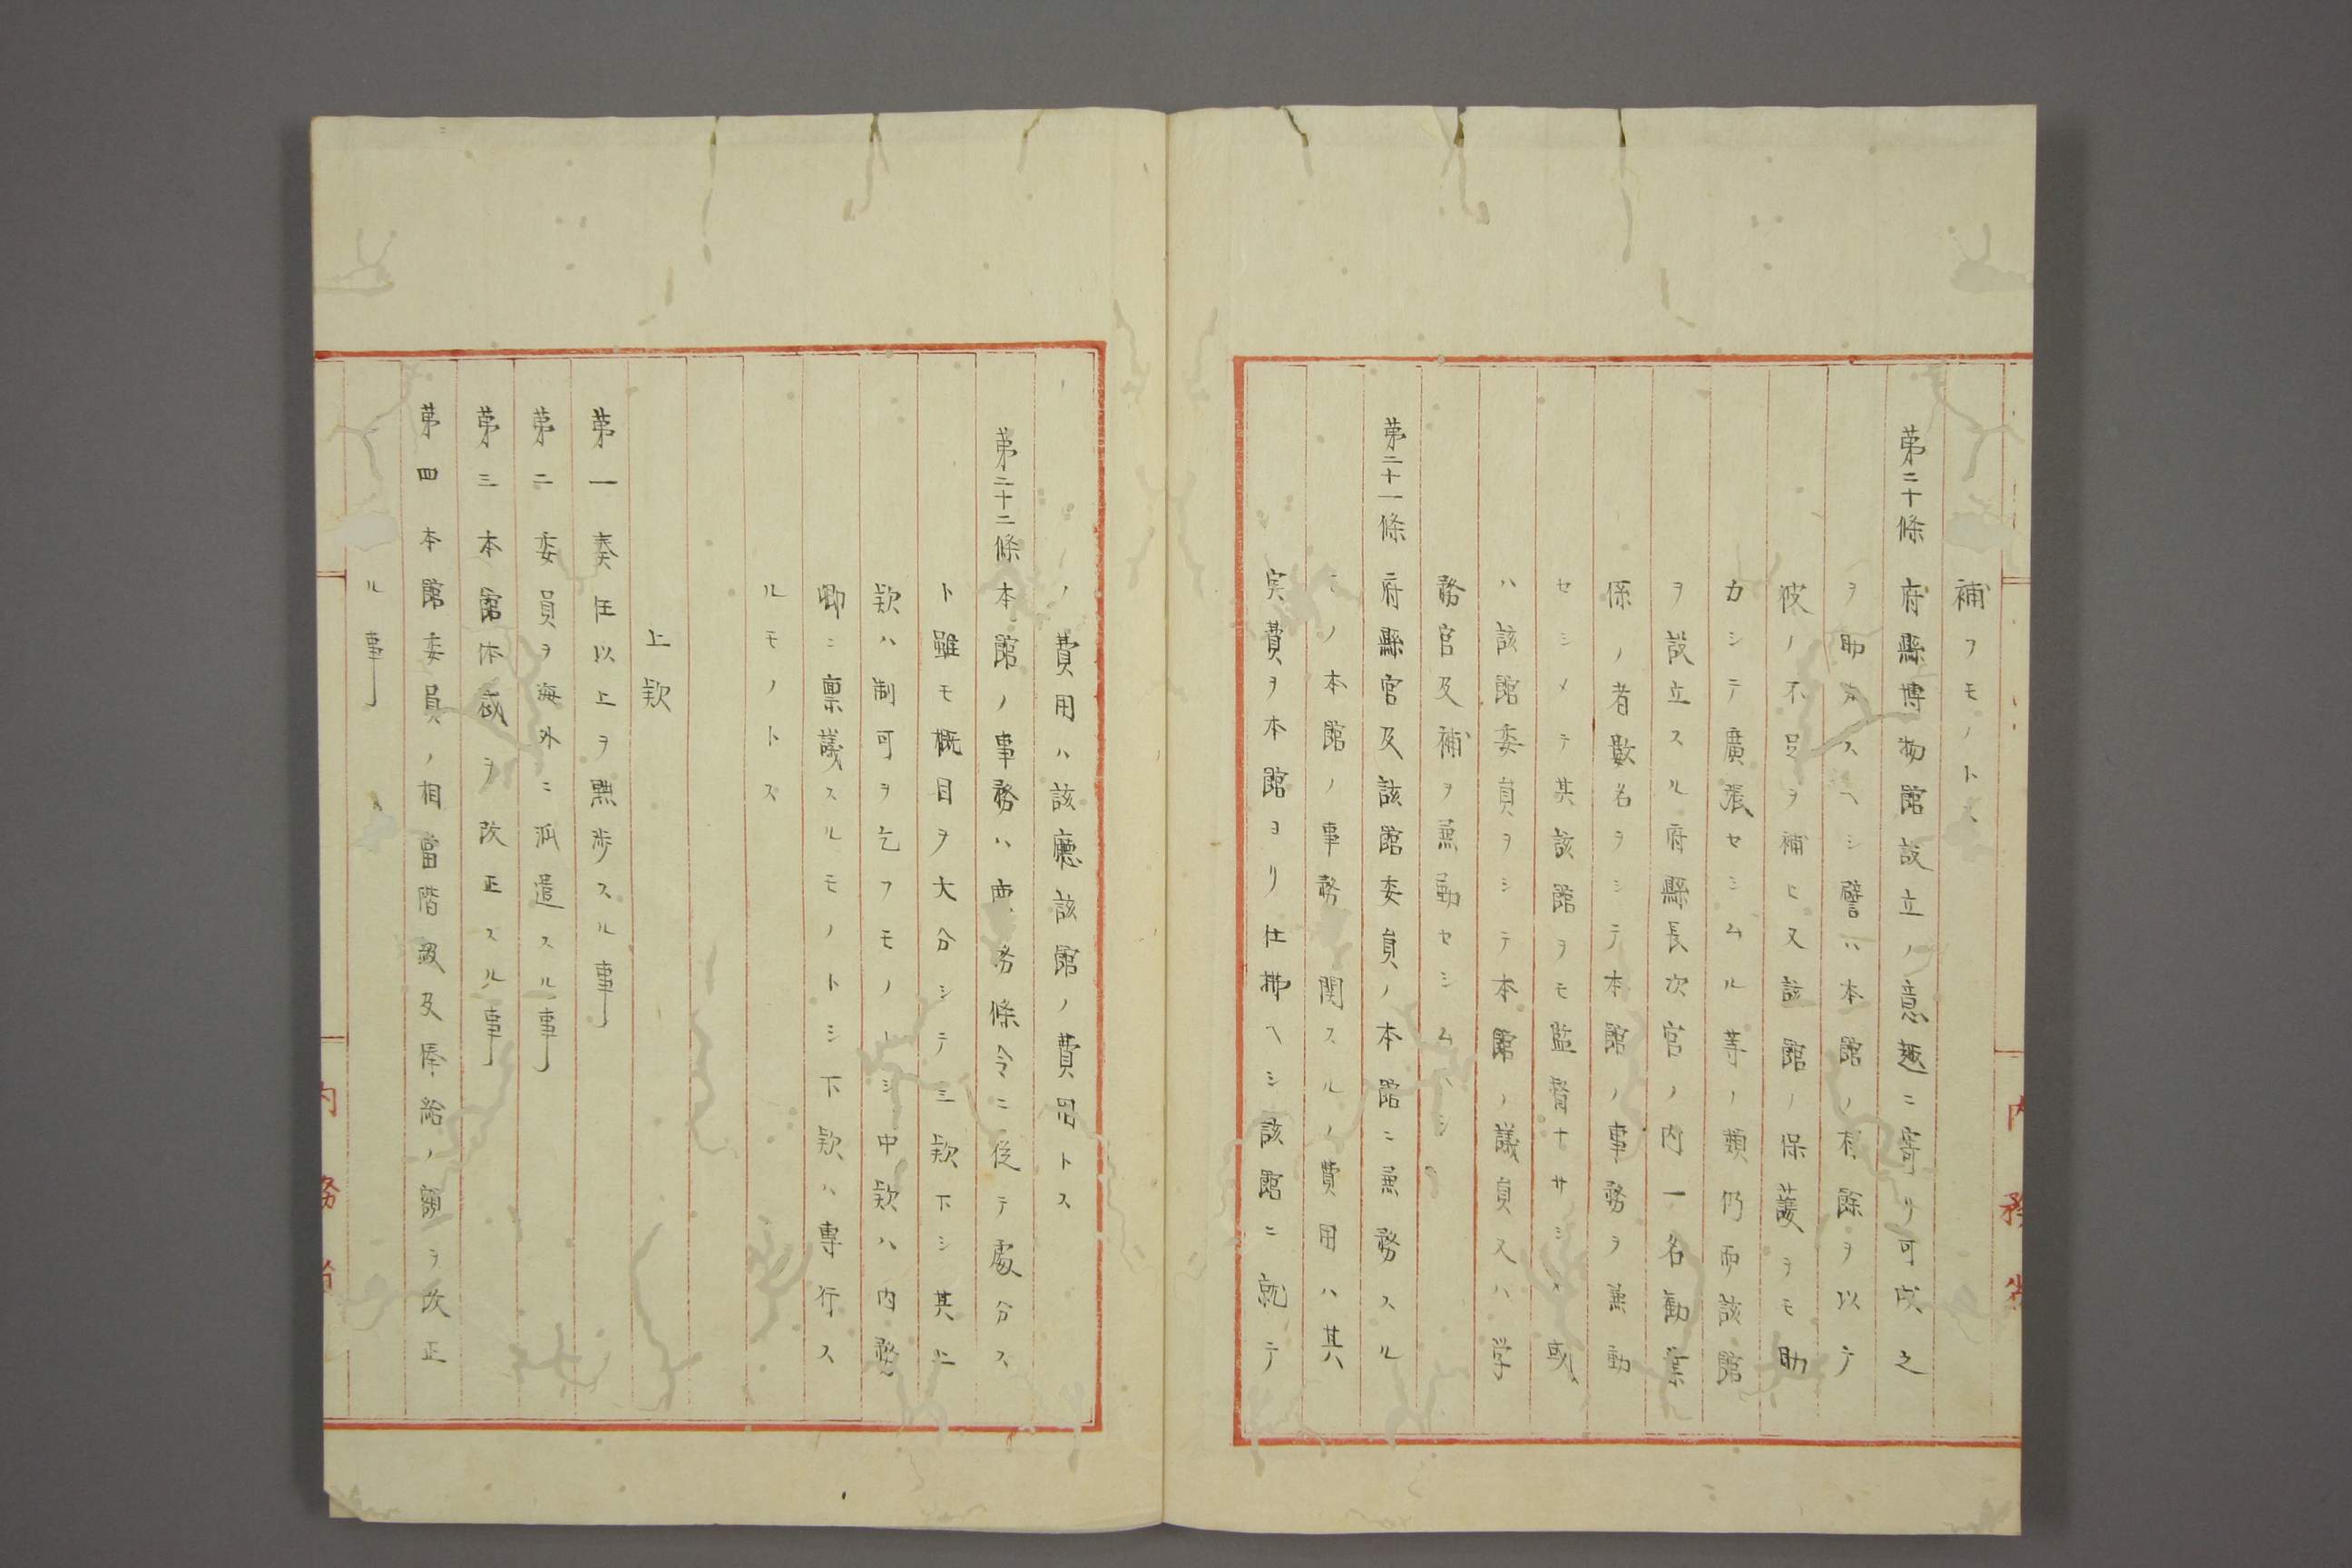 補フモノトス
第二十條 府縣博物館設立ノ意趣ニ寄リ可成之
ヲ助クヘシ譬ハ本館ノ有餘ヲ以テ
彼ノ不足ヲ補ヒ又該館ノ保護ヲモ助
カシテ廣張セシムル等ノ類仍而該館
ヲ設立スル府縣長次官ノ内一名勧業
係ノ者數名ヲシテ本館ノ事務ヲ兼勤
セシメテ其該館ヲモ監督ナサシメ或
ハ該館委員ヲシテ本館ノ議員又ハ学
務官及補ヲ兼勤セシムヘシ
第二十一條 府縣官及該館委員ノ本館ニ兼務スル
モノ本館ノ事務関スルノ費用ハ其
実費ヲ本館ヨリ仕拂ヘシ該館ニ就テ
ノ費用ハ該廳該館ノ費用トス
第二十二條 本館ノ事務ハ事務條令ニ従テ處分ス
ト雖モ概目ヲ大分シテ三款下シ其上
款ハ制可ヲ乞フモノトシ中款ハ内務
卿ニ禀議スルモノトシ下款ハ専行ス
ルモノトス
上款
第一 奏任以上ヲ黜陟スル事
第二 委員ヲ海外ニ派遣スル事
第三 本館体裁ヲ改正スル事
第四 本館委員ノ相當階級及俸給ノ額ヲ改正
ル事
内務省
内務省